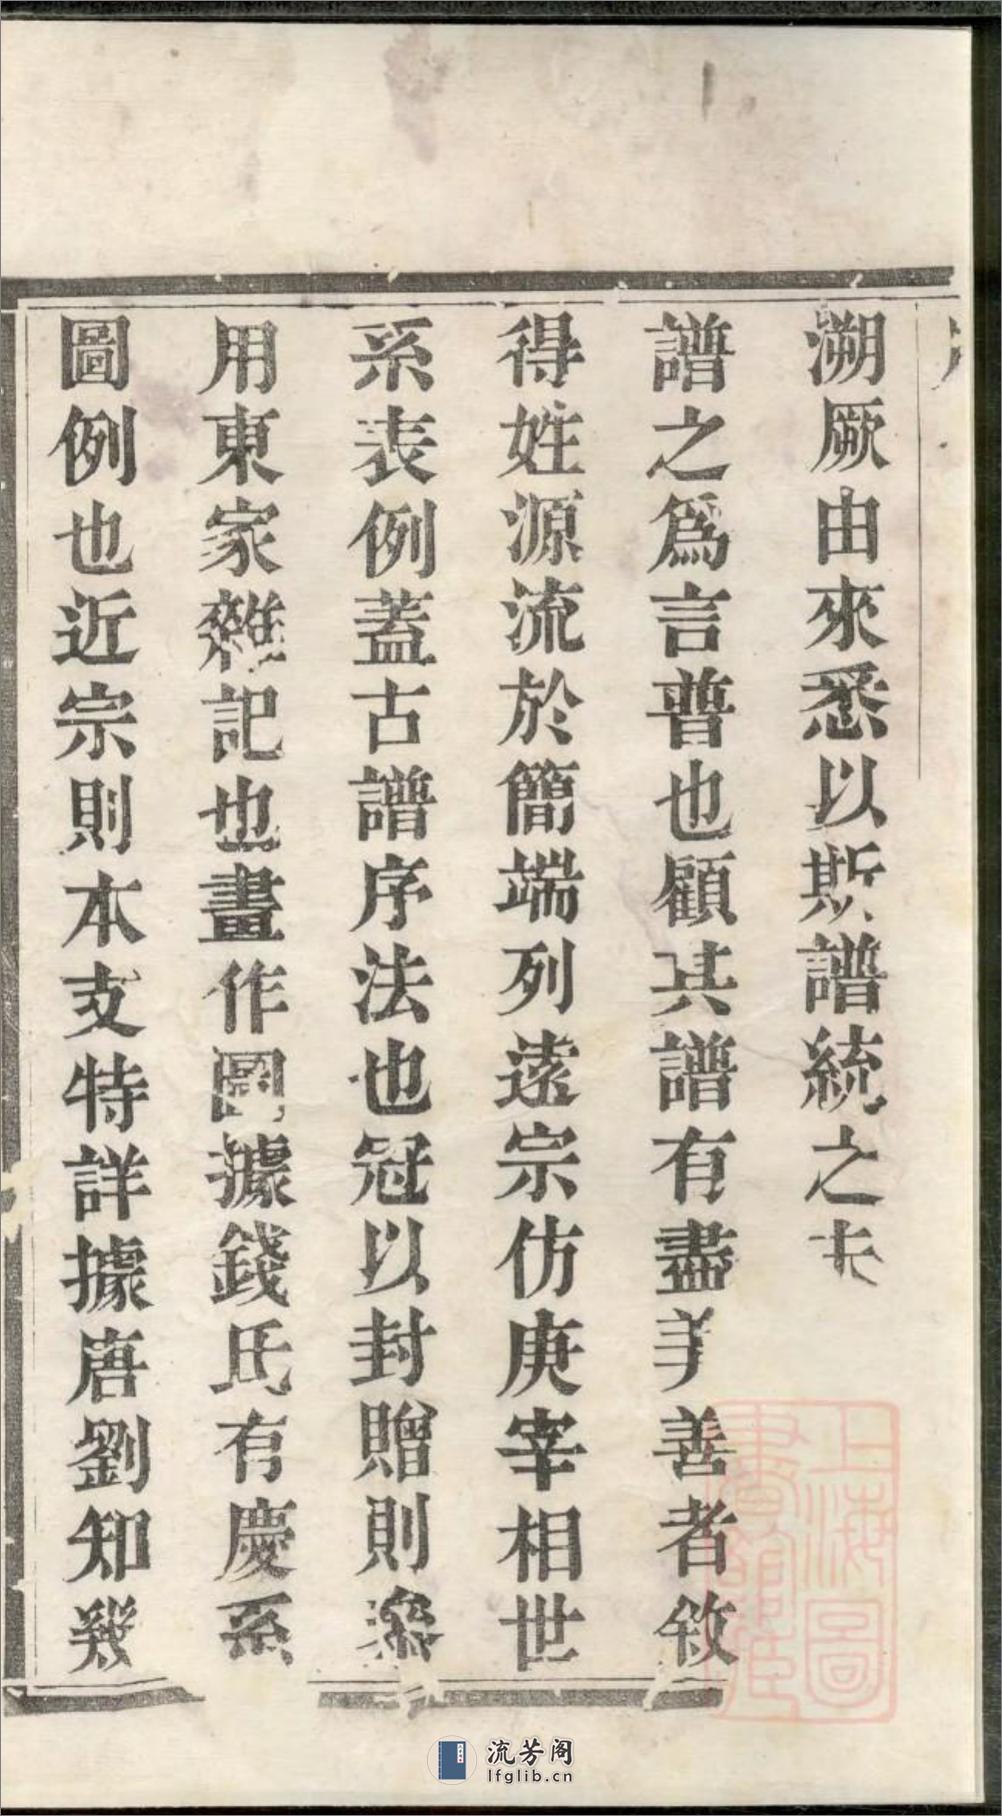 溯厥由來悉以斯譜統之夫
譜之為言普也顧其譜有盡美善者敘
得姓源流於簡端列遠宗仿庚宰相世
系表例蓋古譜序法也冠以封贈則
用東家雜記也畫作圖據錢氏有慶系
圖例也近宗則本支特詳據唐劉知幾
上海圖書館藏
流芳阁
lfglib.cn